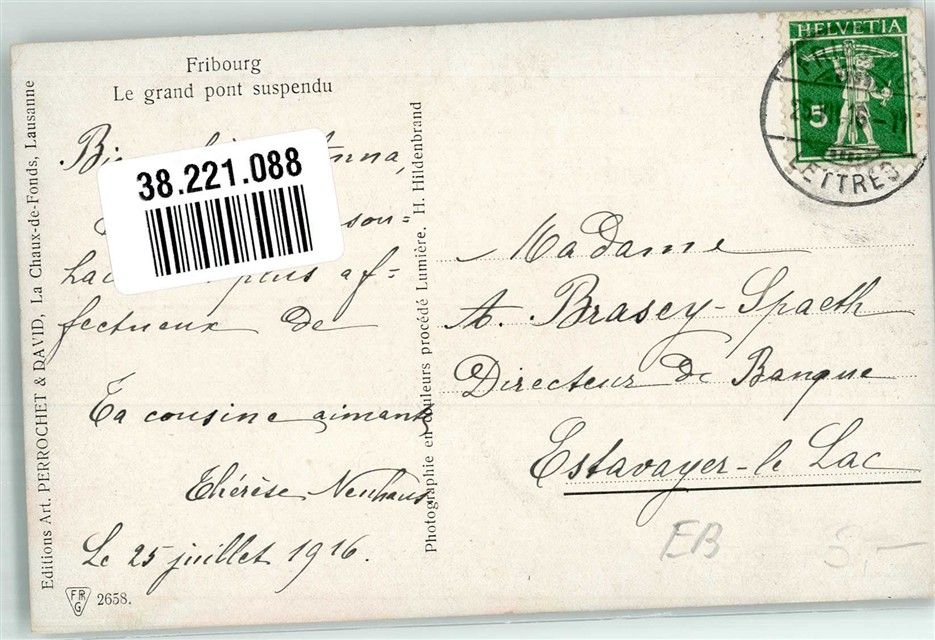 Fribourg
Le grand pont suspendu
Editions Art. PERROCHET & DAVID, La Chaux-de-Fonds, Lausanne
38.221.088
nna,
sou=
plus af=
fectueux de
Ta cousine aimante
Thérèse Neuhaus
Le 25 juillet 1916.
FPR
G
2658.
Photographie en couleurs procédé Lumière. H. Hildenbrand
HELVETIA
5
LETTRES
Madame
A. Brasey-Spaeth
Directeur de Banque
Estavayer-le Lac
EB
5,-